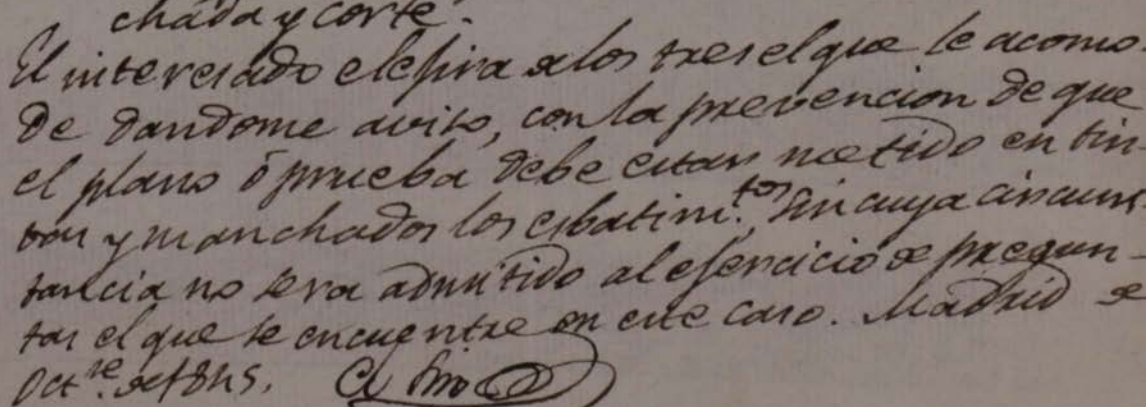 chada y corte.
El interesado elejira de los tres el que le acomo
de dandome aviso, con la prevencion de que
el plano ó prueba debe estar metido en tin-
tas y manchados los esbatim.tos, sin cuya circuns
tancia no sera admitido al ejercicio de pregun-
tas el que se encuentre en este caso. Madrid de
Oct.re de 1845.